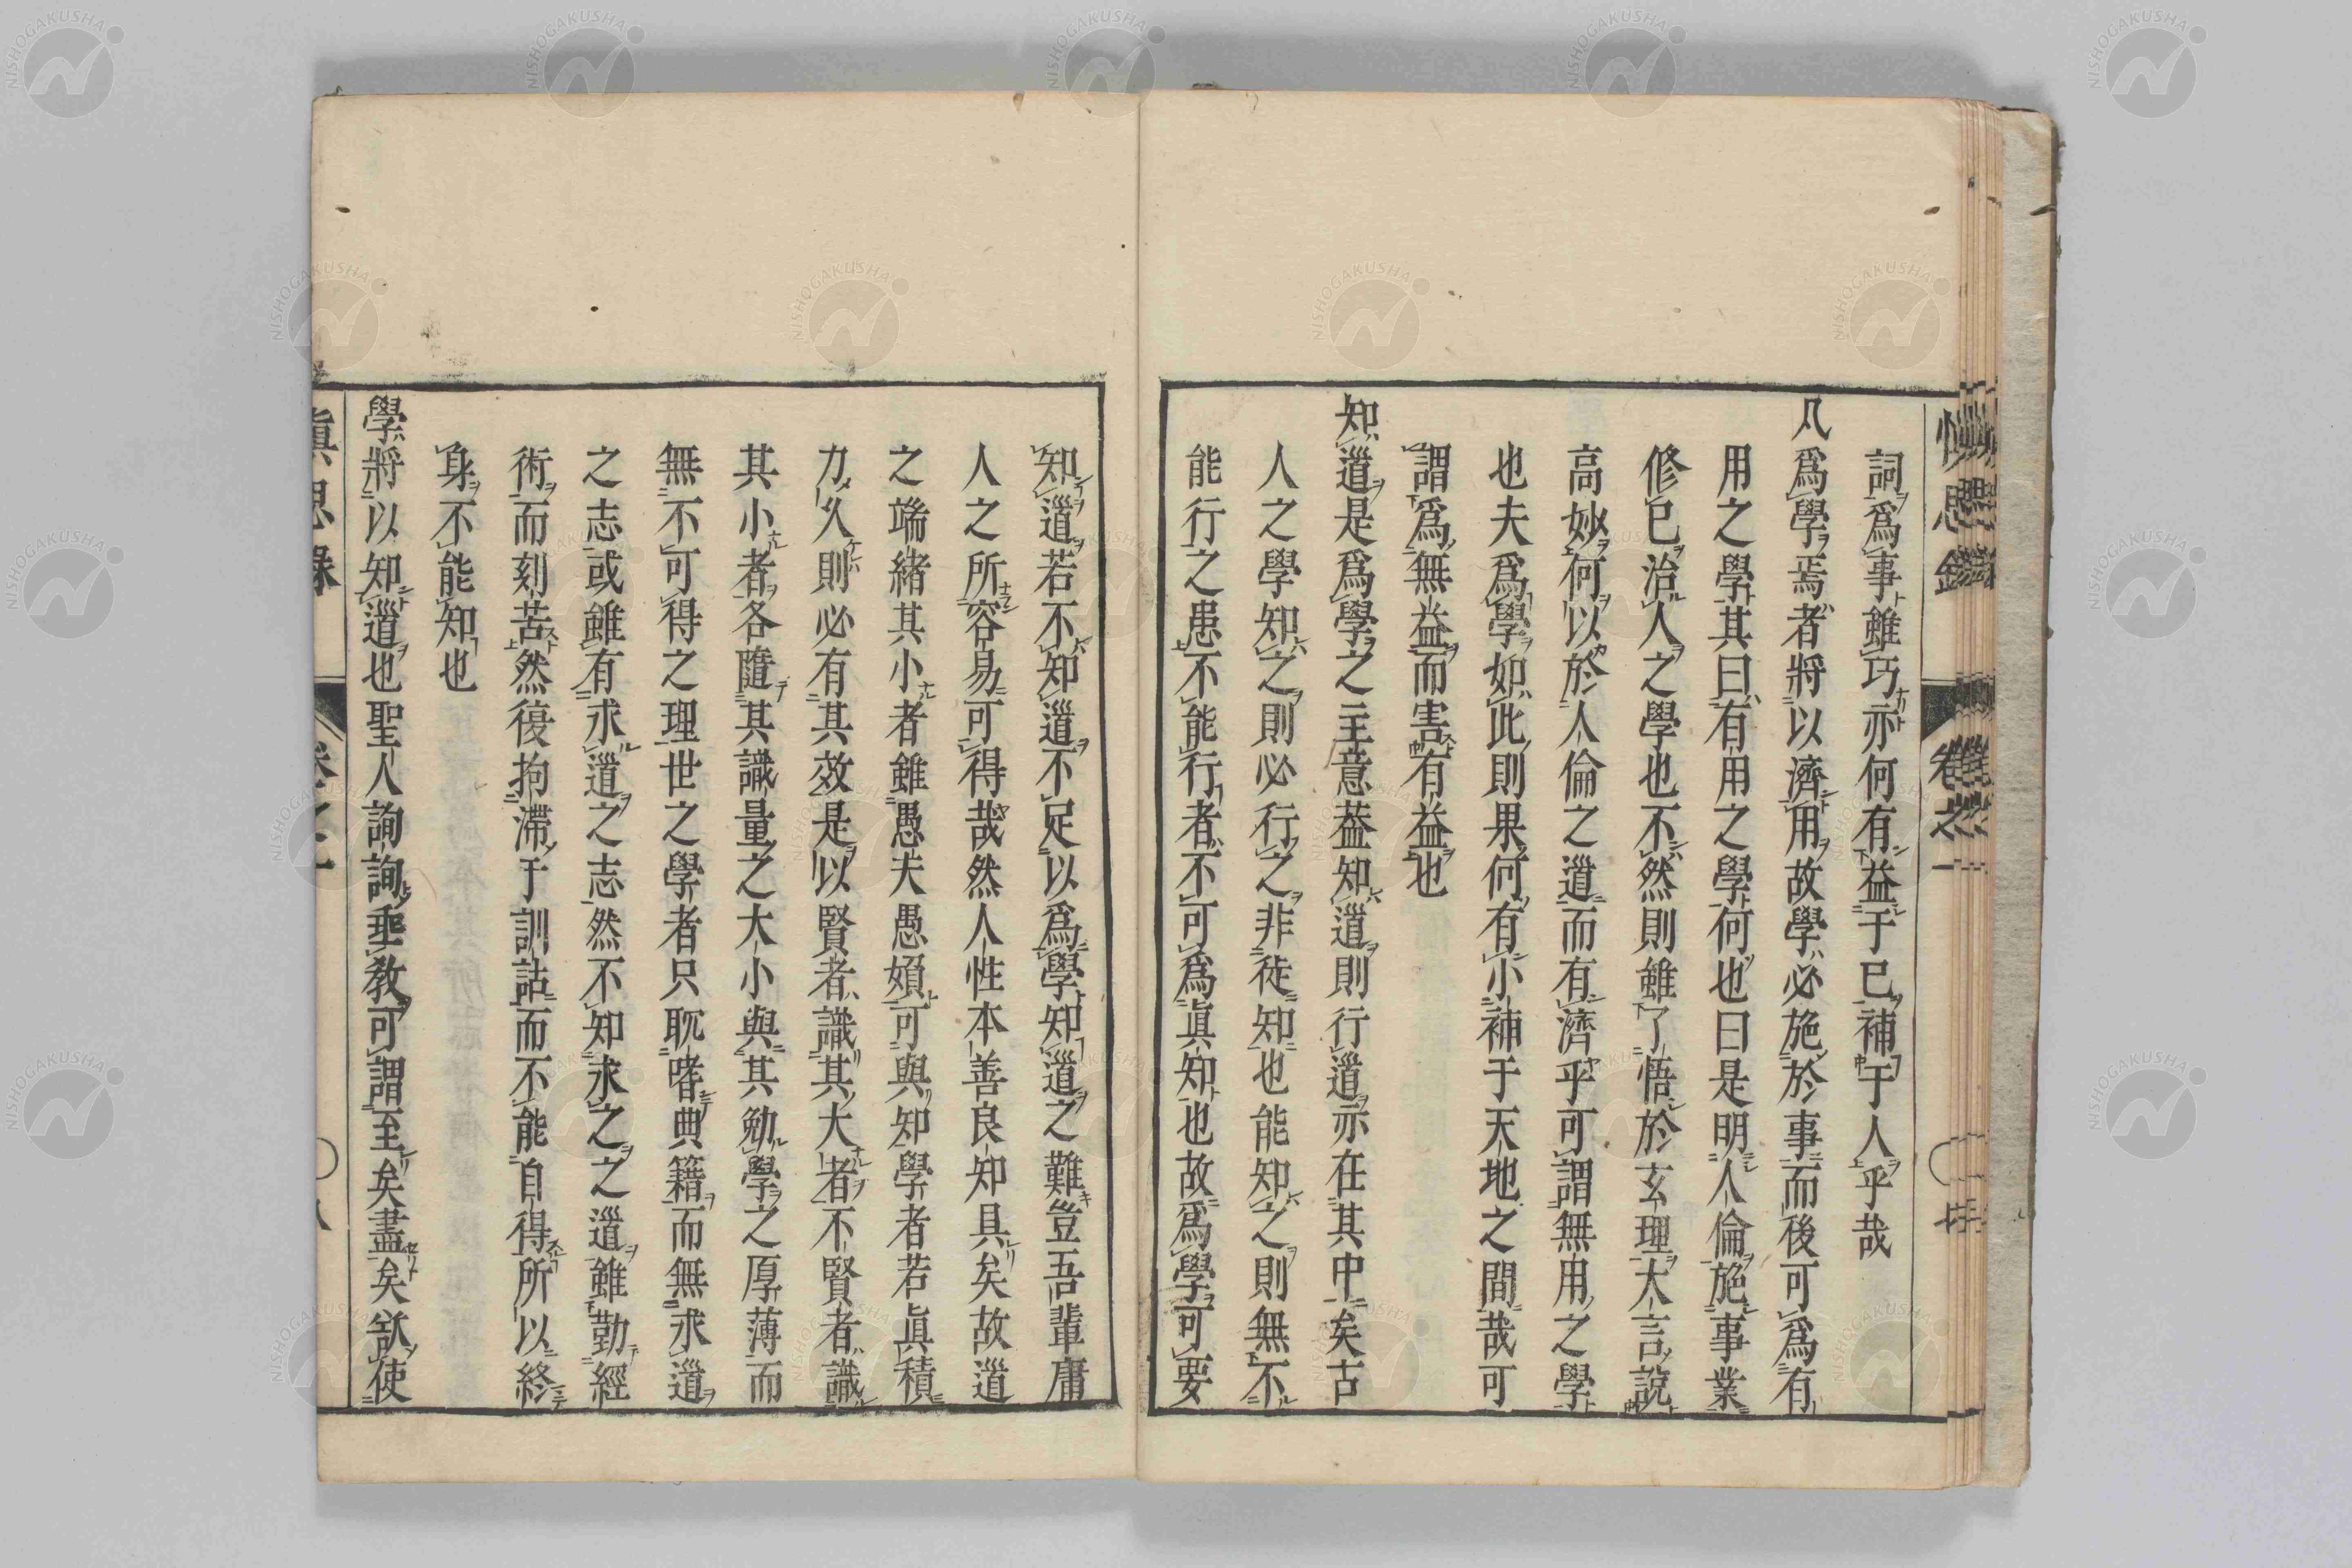 詞爲事雖巧亦何有益于已補于人乎哉
凡爲學焉者將以濟用故學必施於事而後可爲有
用之學其曰有用之學何也曰是明人倫施事業
修已治人之學也不然則雖了悟於玄理大言說
高妙何以於人倫之道而有濟乎可謂無用之學
也夫爲學如此則果何有小補于天地之間哉可
謂爲無益而害有益也
知道是爲學之主意葢知道則行道亦在其中矣古
人之學知之則必行之非徒知也能知之則無不
能行之患不能行者不可爲眞知也故爲學可要
知道若不知道不足以爲學知道之難豈吾輩庸
人之所容易可得哉然人性本善良知具矣故道
之端緒其小者雖愚夫愚婦可與知學者若眞積
力久則必有其效是以賢者識其大者不賢者識
其小者各隨其識量之大小與其勉學之厚薄而
無不可得之理世之學者只耽嗜典籍而無求道
之志或雖有求道之志然不知求之之道雖勤經
術而刻苦然復拘滯于訓詁而不能自得所以終
身不能知也
學將以知道也聖人詢詢垂教可謂至矣盡矣欲使
愼思錄
卷之一
八